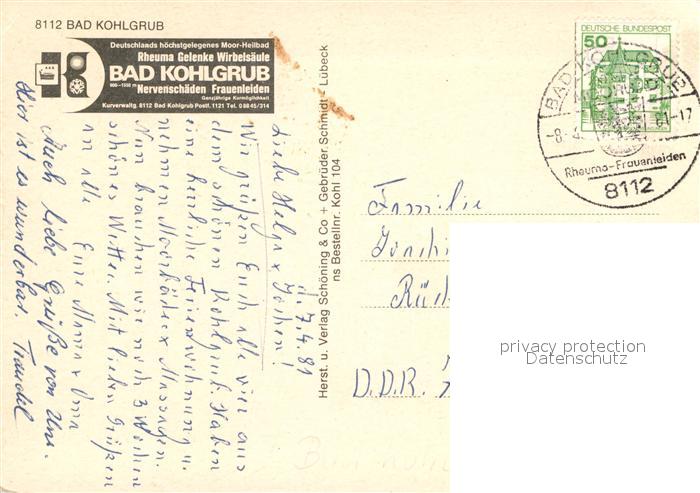 8112 BAD KOHLGRUB
Deutschlands höchstgelegenes Moor-Heilbad
Rheuma Gelenke Wirbelsäule
BAD KOHLGRUB
Nervenschäden Frauenleiden
Ganzjährige Kurmöglichkeit
Kurverwaltg. 8112 Bad Kohlgrub Postf. 1121 Tel. 08845/314
d. 7.4.81
Liebe Helga & Jochen!
Wir grüßen Euch alle vier aus
dem schönen Kohlgrub. Haben
eine herrliche Ferienwohnung u.
nehmen Moorbäder & Massagen.
Nun brauchen wir noch 3 Wochen
schönes Wetter. Mit lieben Grüßen
an alle
Eure Mama & Oma
Auch liebe Grüße von Uns.
Hier ist es wunderbar. Traudel
Herst. u. Verlag Schöning & Co + Gebrüder Schmidt - Lübeck
ns Bestellnr. Kohl 104
50
DEUTSCHE BUNDESPOST
BAD KOHLGRUB
-8.
81-17
Rheuma-Frauenleiden
8112
Familie
D.D.R.
privacy protection
Datenschutz